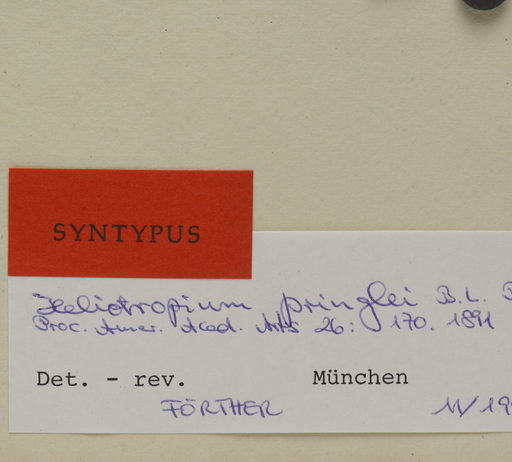 SYNTYPUS
Heliotropium pringlei B.L.
Proc. Amer. Acad. Arts 26: 170. 1891
Det. - rev. München
FÖRTHER